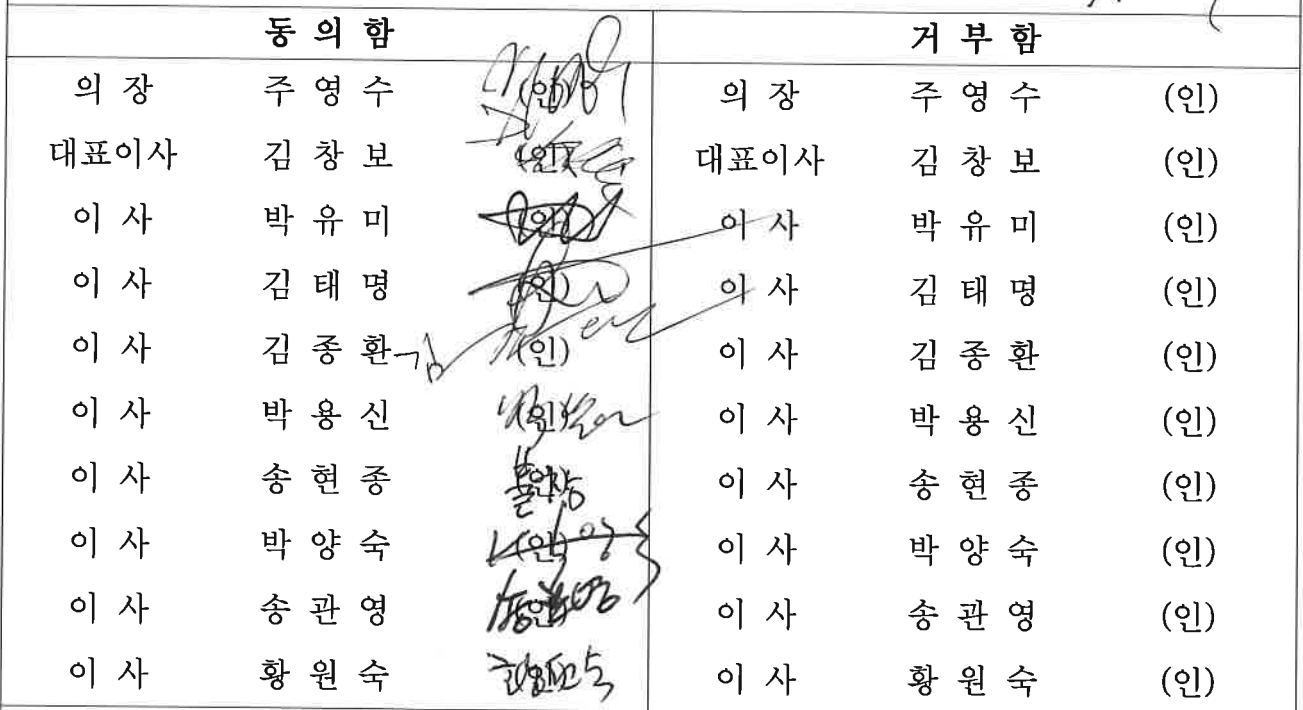 동 의 함 거 부 함
의 장 주 영 수 (인) 의 장 주 영 수 (인)
대표이사 김 창 보 (인) 대표이사 김 창 보 (인)
이 사 박 유 미 (인) 이 사 박 유 미 (인)
이 사 김 태 명 (인) 이 사 김 태 명 (인)
이 사 김 종 환 (인) 이 사 김 종 환 (인)
이 사 박 용 신 (인) 이 사 박 용 신 (인)
이 사 송 현 종 (인) 불참 이 사 송 현 종 (인)
이 사 박 양 숙 (인) 이 사 박 양 숙 (인)
이 사 송 관 영 (인) 이 사 송 관 영 (인)
이 사 황 원 숙 (인) 이 사 황 원 숙 (인)